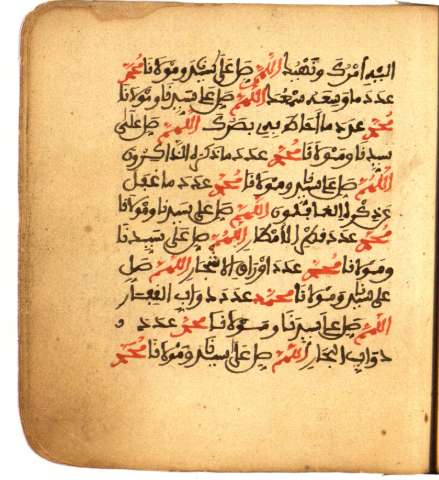 اليه امرك ونهيك اللهم صل على سيدنا ومولانا محمد
عدد ما وسعه سمعك اللهم صل على سيدنا ومولانا
محمد عدد ما احاط به بصرك اللهم صل على
سيدنا ومولانا محمد عدد ما ذكره الذاكرون
اللهم صل على سيدنا ومولانا محمد عدد ما غفل
عن ذكره الغافلون اللهم صل على سيدنا ومولانا
محمد عدد قطر الامطار اللهم صل على سيدنا
ومولانا محمد عدد اوراق الاشجار اللهم صل
على سيدنا ومولانا محمد عدد دواب القفار
اللهم صل على سيدنا ومولانا محمد عدد
دواب البحار اللهم صل على سيدنا ومولانا محمد